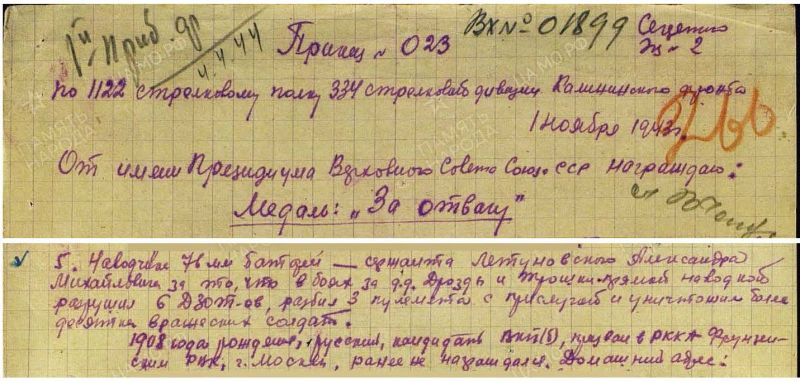 Iй Приб фр
4.4.44
Приказ № 023
Вх№01899
Секретно
Экз № 2
По 1122 стрелковому полку 334 стрелковой дивизии Калининского фронта
1 ноября 1943г.
От имени Президиума Верховного Совета Союза ССР награждаю:
Медаль: „За отвагу"
5. Наводчика 76 мм батареи – сержанта Летуновского Александра
Михайловича за то, что в боях за д.д. Дрозды и Трошки прямой наводкой
разрушил 6 ДЗОТ-ов, разбил 3 пулемета с прислугой и уничтожил более
десятка вражеских солдат.
1908 года рождения, русский, кандидат ВКП(б), призван в РККА Фрунзен-
ским РВК, г. Москвы, ранее не награждался. Домашний адрес: